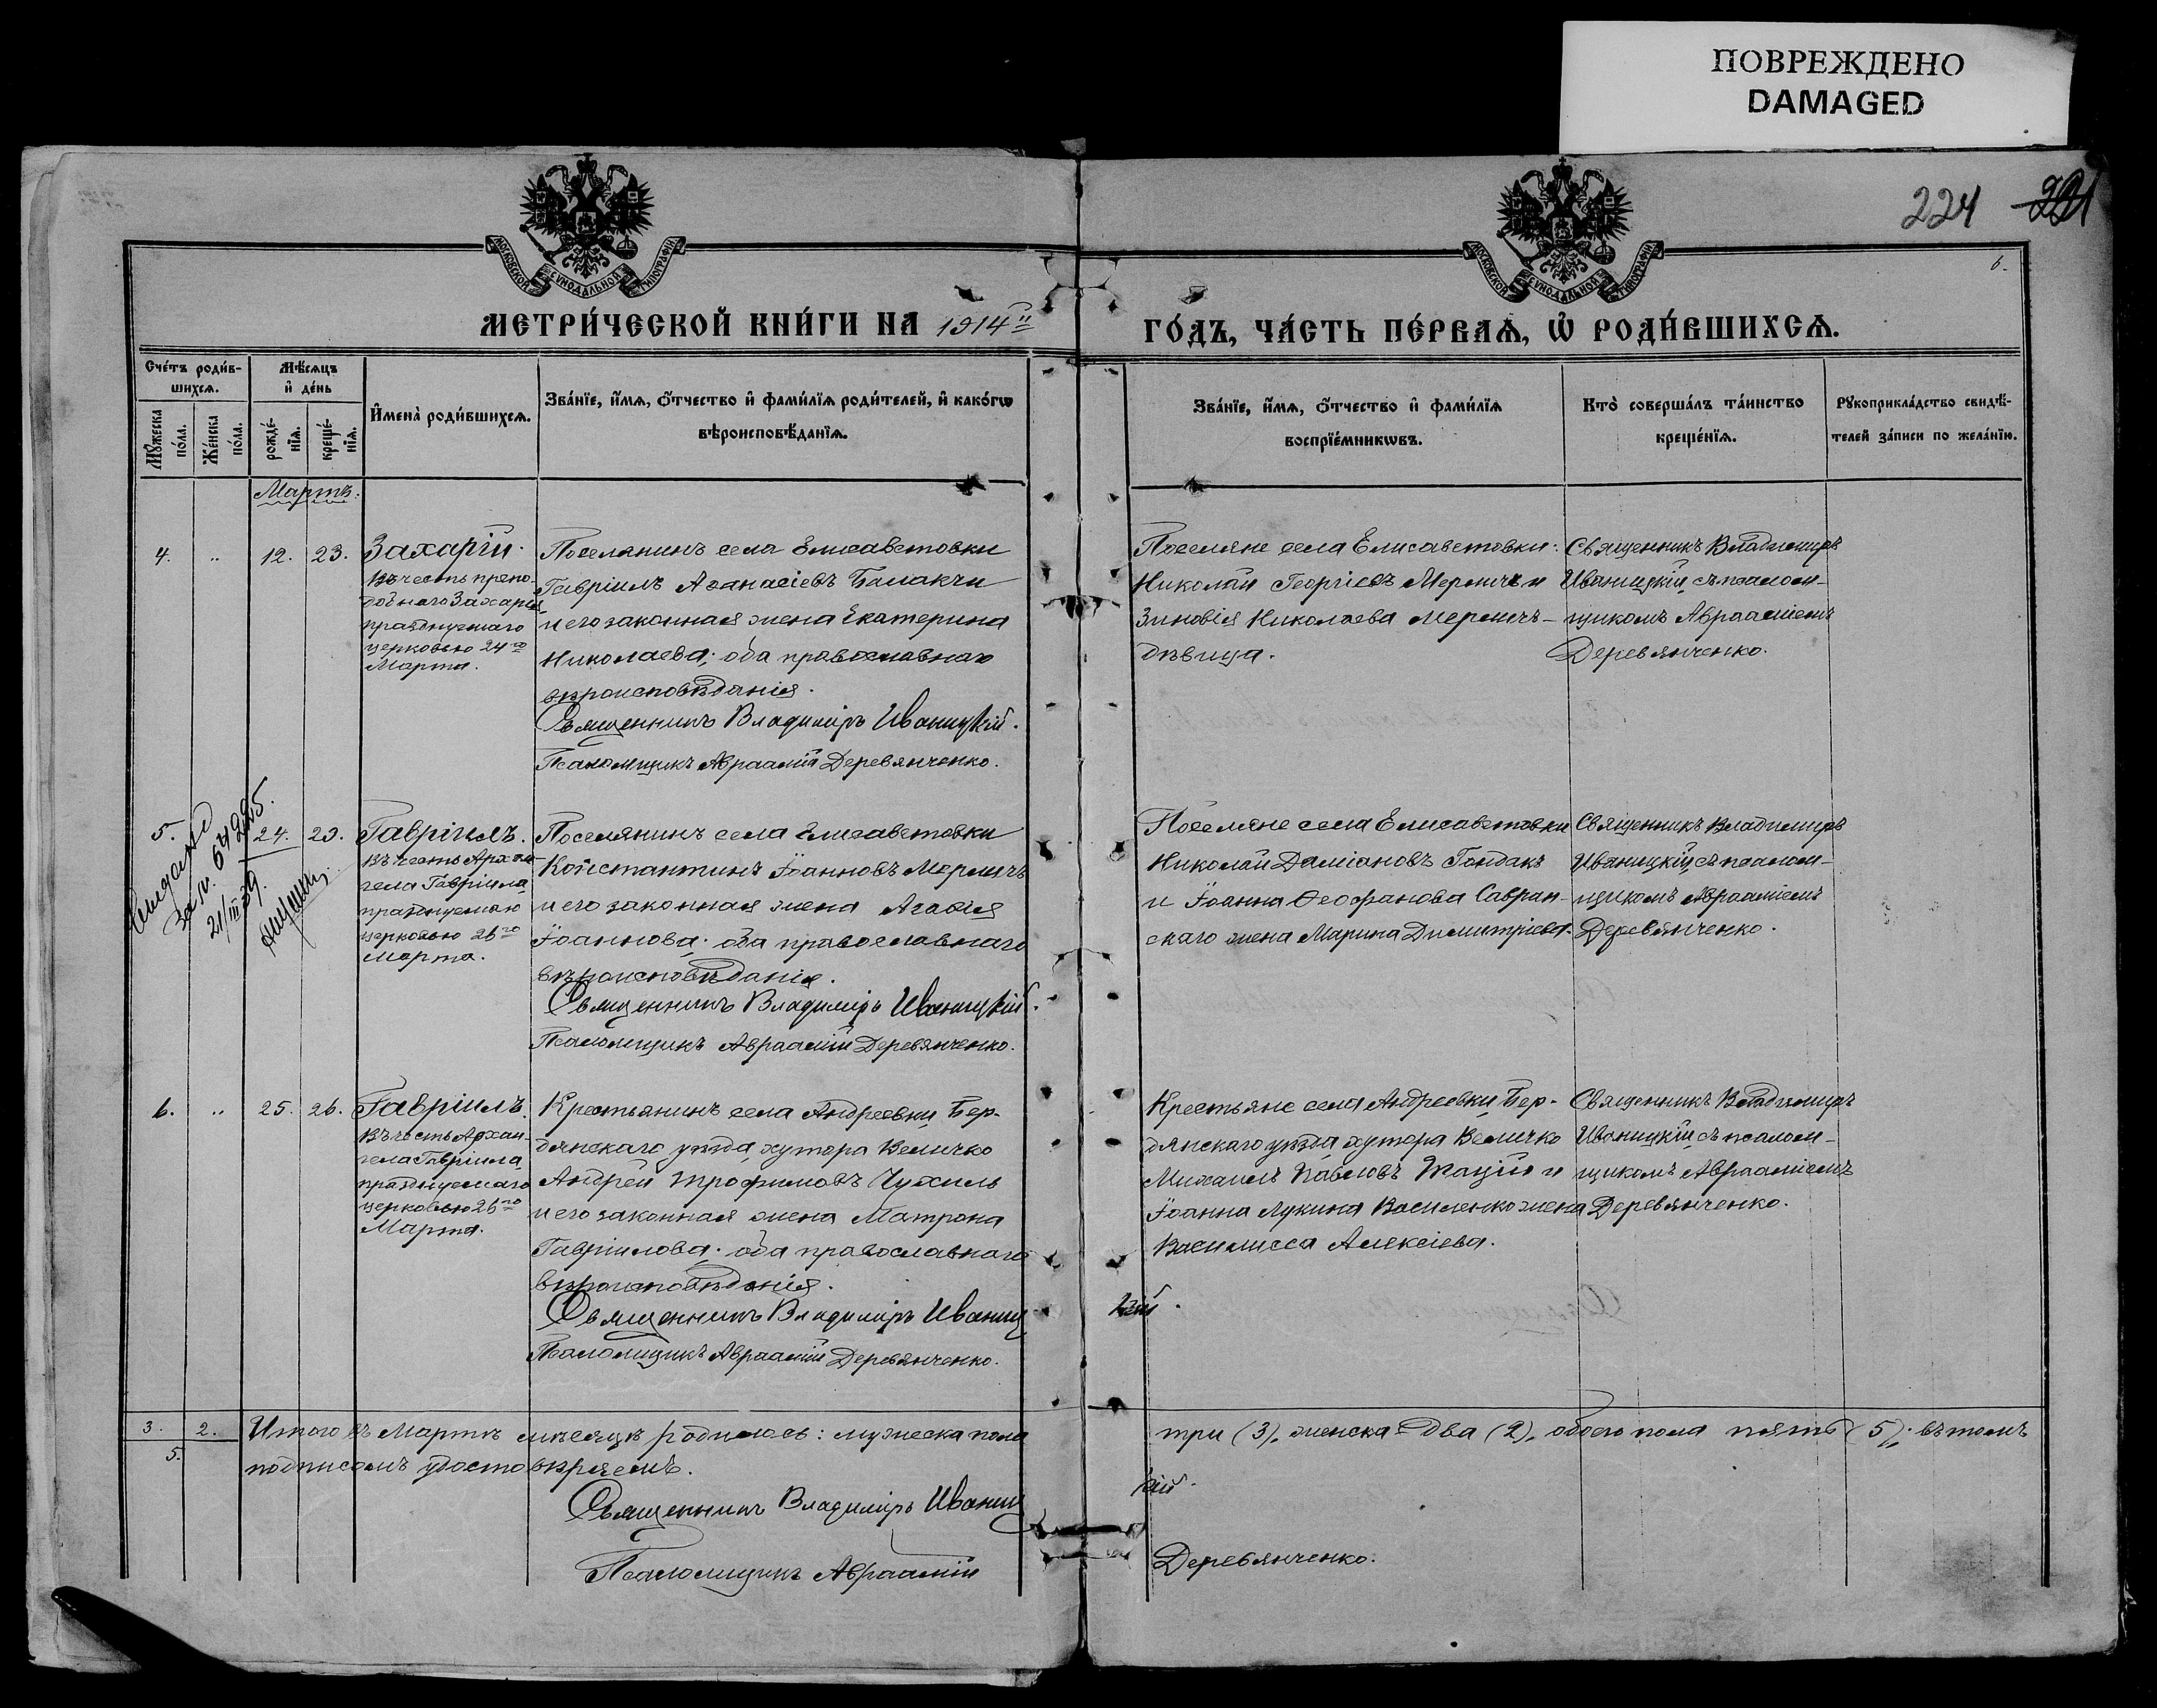 ПОВРЕЖДЕНО
DAMAGED
224
6.
МОСКОВСКОЙ СѴНОДАЛЬНОЙ ТИПОГРАФІИ
МОСКОВСКОЙ СѴНОДАЛЬНОЙ ТИПОГРАФІИ
МЕТРИ́ЧЕСКОЙ КНИ́ГИ НА 1914й
ГО́ДЪ, ЧА́СТЬ ПЕ́РВАѦ, Ѡ҆ РОДИ́ВШИХСѦ.
Сче́тъ роди́в-
шихсѧ.
Мꙋ́жеска по́ла.
Же́нска по́ла.
Мѣ́сѧцъ
и҆ де́нь
рожде́-
нїѧ.
креще́-
нїѧ.
И҆мена̀ роди́вшихсѧ.
Зва́нїе, и҆́мѧ, ѻ҆́тчество и҆ фами́лїѧ роди́телей, и҆ како́гѡ
вѣроисповѣ́данїѧ.
Зва́нїе, и҆́мѧ, ѻ҆́тчество и҆ фами́лїѧ
воспрїе́мникѡвъ.
Кто̀ соверша́лъ та́инство
креще́нїѧ.
Рꙋкоприкла́дство свидѣ́-
телей за́писи по жела́нїю.
Мартъ.
4. „ 12. 23.
Захарій.
Въ честь препо-
добнаго Захарія,
празднуемаго
церковью 24го
Марта.
Поселянинъ села Елисаветовки
Гавріилъ Аѳанасіевъ Бамакчи
и его законная жена Екатерина
Николаева; оба православнаго
вѣроисповѣданія.
Священникъ Владиміръ Иваницкій.
Псаломщикъ Авраамій Деревянченко.
Поселяне села Елисаветовки:
Николай Георгіевъ Мермичъ и
Зиновія Николаева Мермичъ-
дѣвица.
Священникъ Владиміръ
Иваницкій съ псалом-
щикомъ Авраамiемъ
Деревянченко.
5. 24. 25.
21/III 39.
Гавріилъ.
Въ честь Архан-
гела Гавріила,
празднуемаго
церковью 26го
Марта.
Поселянинъ села Елисаветовки
Константинъ Іоанновъ Мермичъ
и его законная жена Агафія
Іоаннова; оба православнаго
вѣроисповѣданія.
Священникъ Владиміръ Иваницкій.
Псаломщикъ Авраамій Деревянченко.
Поселяне села Елисаветовки
Николай Даміановъ Гайдакъ
и Іоанна Ѳеофанова Савран-
скаго жена Марина Димитріева.
Священникъ Владиміръ
Иваницкій съ псалом-
щикомъ Авраамiемъ
Деревянченко.
6. „ 25. 26.
Гавріилъ.
Въ честь Архан-
гела Гавріила,
празднуемаго
церковью 26го
Марта.
Крестьянинъ села Андреевки, Бер-
дянскаго уѣзда, хутора Величко
Андрей Трофимовъ Чухиль
и его законная жена Матрона
Гавріилова; оба православнаго
вѣроисповѣданія.
Священникъ Владиміръ Иваницкій.
Псаломщикъ Авраамій Деревянченко.
Крестьяне села Андреевки, Бер-
дянскаго уѣзда, хутора Величко
Михаилъ Павловъ Тацій и
Іоанна Лукина Василенко жена
Василисса Алексіева.
Священникъ Владиміръ
Иваницкій съ псалом-
щикомъ Авраамiемъ
Деревянченко.
3. 2.
5.
Итого въ Мартѣ мѣсяцѣ родилось: мужеска пола три (3), женска два (2), обоего пола пять (5); въ томъ
подписомъ удостовѣряемъ.
Священникъ Владиміръ Иваницкій.
Псаломщикъ Авраамій Деревянченко.